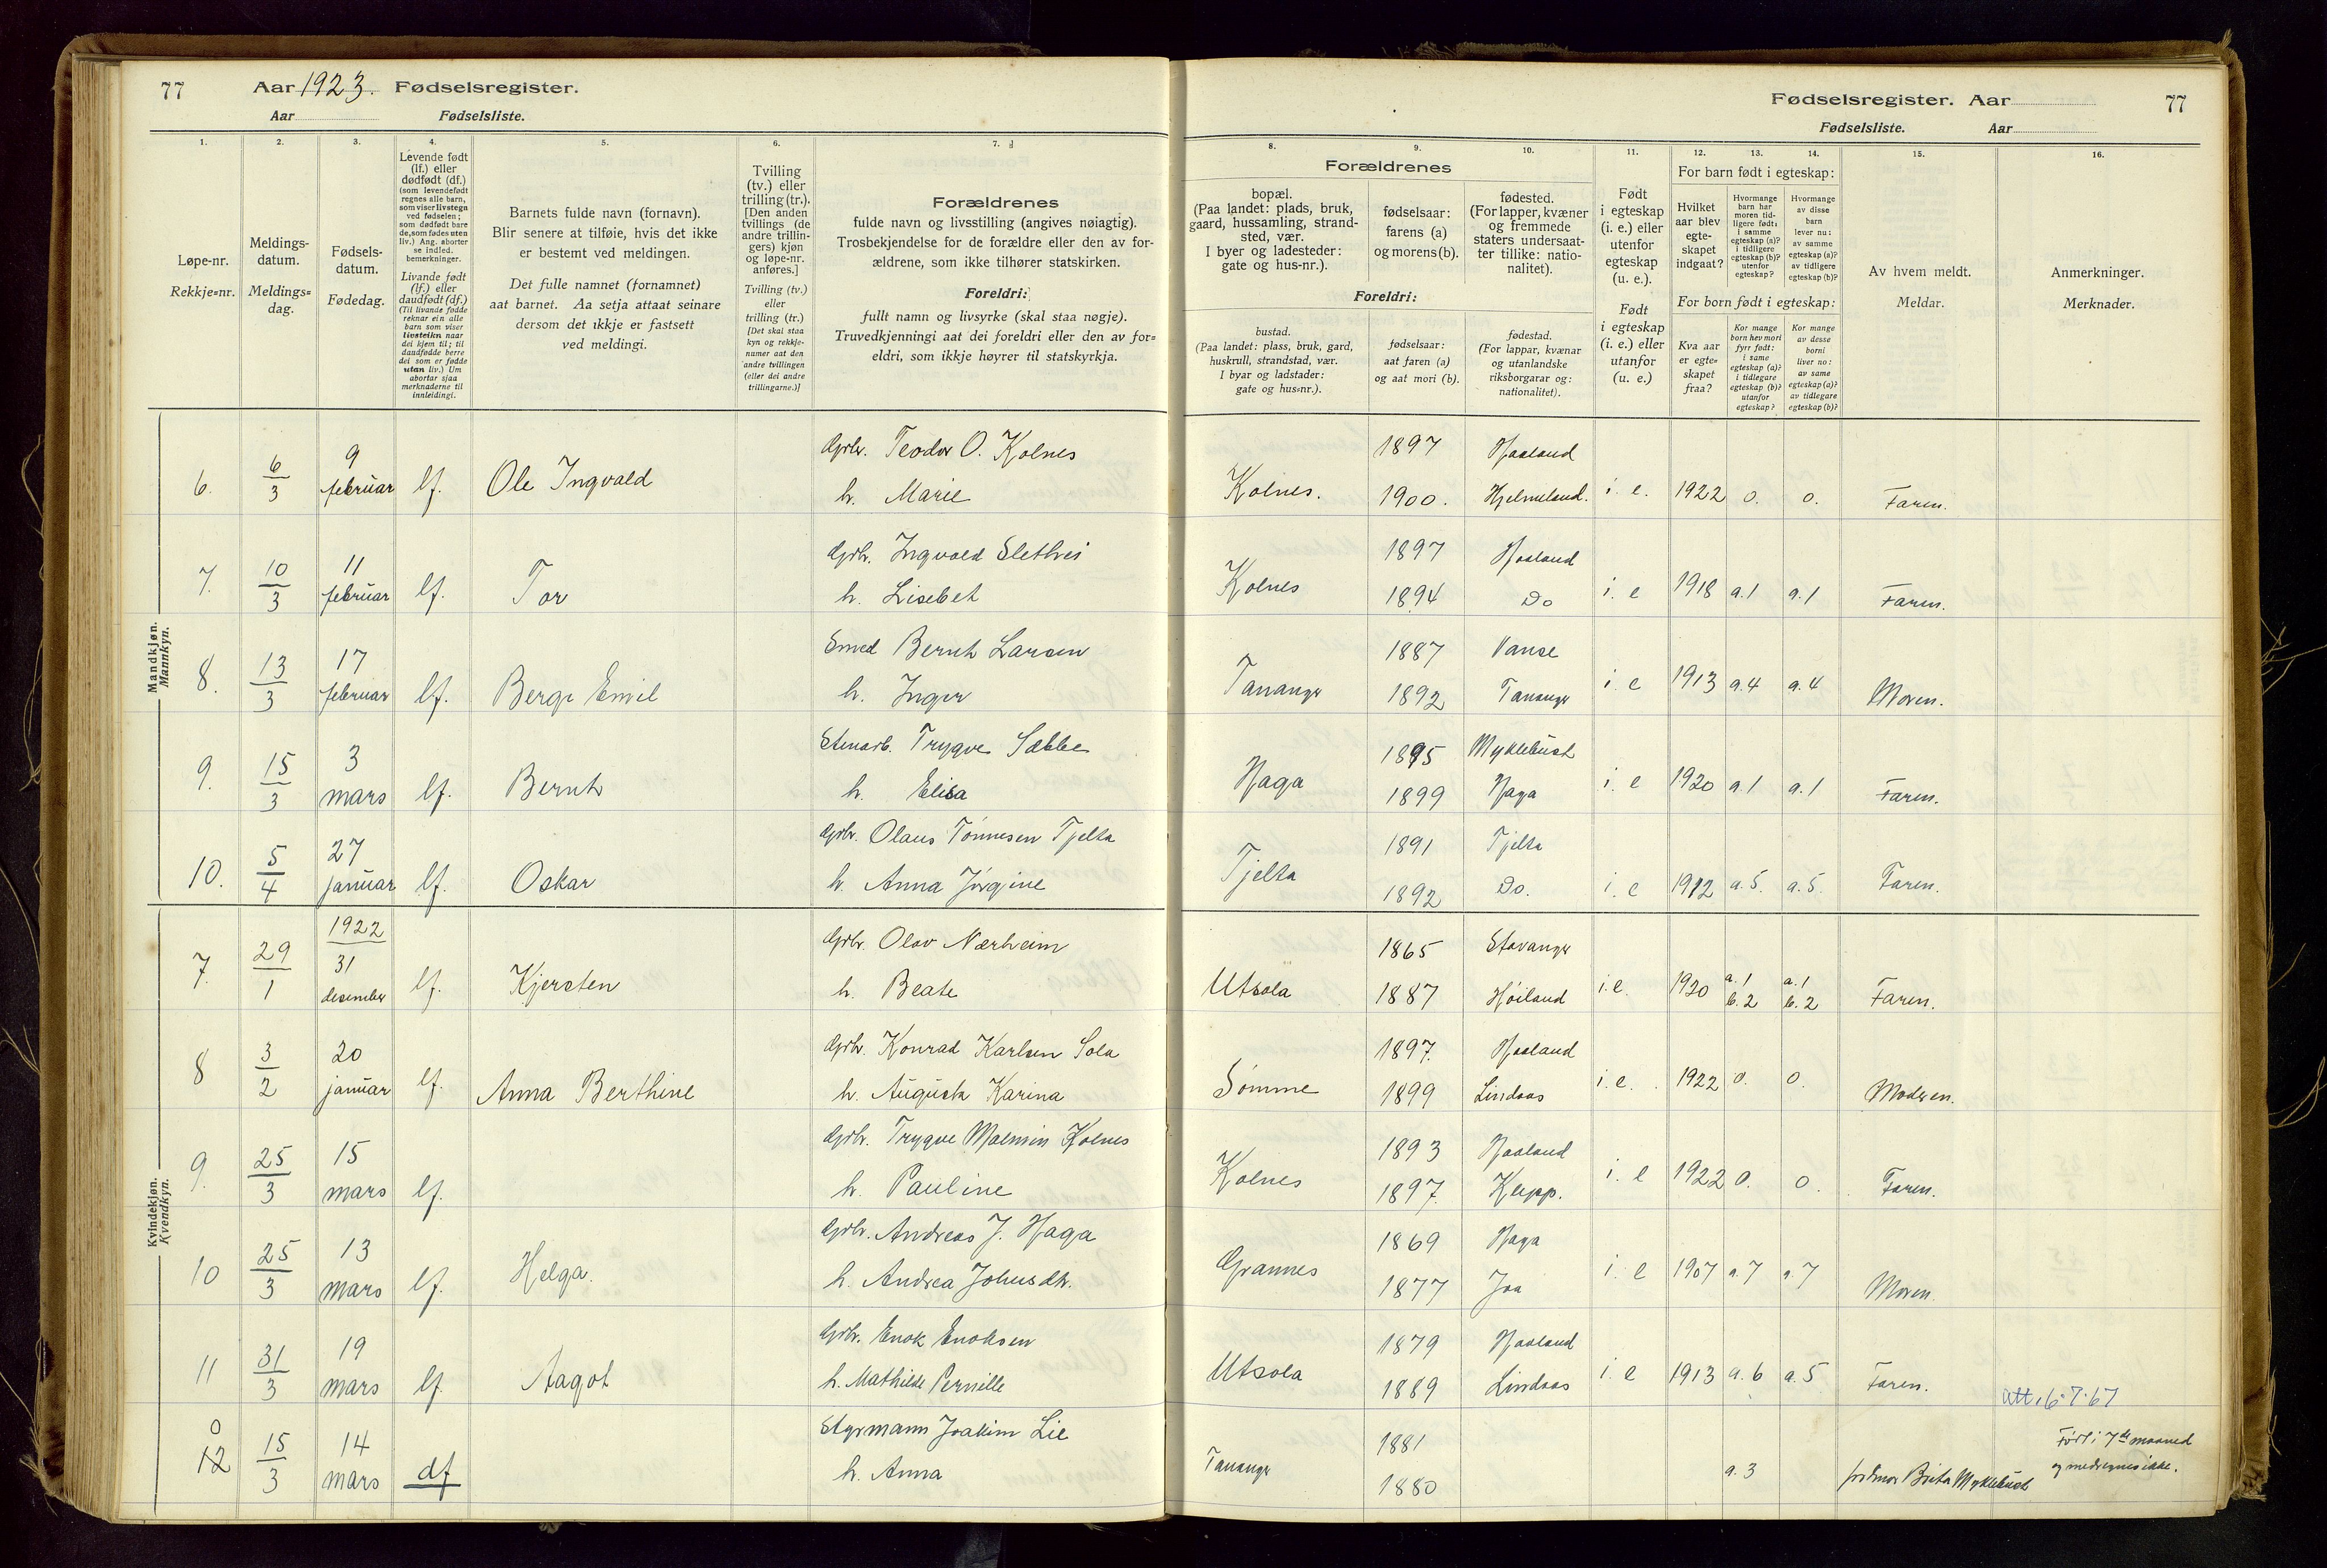 77 Aar 1923. Fødselsregister.
Aar Fødselsliste.
Fødselsregister. Aar 77
Fødselsliste. Aar
1. 2. 3. 4. 5. 6. 7. 8. 9. 10. 11. 12. 13. 14. 15. 16.
Løpe-nr.
Rekkje=nr.
Meldings-
datum.
Meldings=
dag.
Fødsels-
datum.
Fødedag.
Levende født
(lf.) eller
dødfødt (df.)
(som levendefødt
regnes alle barn,
som viser livstegn
ved fødselen;
som dødfødt bare
de, som fødes uten
liv.) Ang. aborter
se indled.
bemerkninger.
Livande født
(lf.) eller
daudfødt (df.)
(Til livande fødde
reknar ein alle
barn som viser
livsteikn naar
dei kjem til; til
daudfødde berre
dei som er fødde
utan liv.) Um
abortar sjaa
merknaderne til
innleidingi.
Barnets fulde navn (fornavn).
Blir senere at tilføie, hvis det ikke
er bestemt ved meldingen.
Det fulle namnet (fornamnet)
aat barnet. Aa setja attaat seinare
dersom det ikkje er fastsett
ved meldingi.
Tvilling
(tv.) eller
trilling (tr.).
[Den anden
tvillings (de
andre trillin-
gers) kjøn
og løpe-nr.
anføres.]
Tvilling (tv.)
eller
trilling (tr.)
[Det skal staa
kyn og rekkje-
numer aat den
andre tvillingen
(eller dei andre
trillingarne.)]
Forældrenes
fulde navn og livsstilling (angives nøiagtig).
Trosbekjendelse for de forældre eller den av for-
ældrene, som ikke tilhører statskirken.
Foreldri:
fullt namn og livsyrke (skal staa nøgje).
Truvedkjenningi aat dei foreldri eller den av for=
eldri, som ikkje høyrer til statskyrkja.
Forældrenes
bopæl.
(Paa landet: plads, bruk,
gaard, hussamling, strand-
sted, vær.
I byer og ladesteder:
gate og hus-nr.).
fødselsaar:
farens (a)
og morens (b).
fødested.
(For lapper, kvæner
og fremmede
staters undersaat-
ter tillike: natio-
nalitet).
Foreldri:
bustad.
(Paa landet: plass, bruk, gard,
huskrull, strandstad, vær.
I byar og ladstader:
gate og hus=nr.).
fødselsaar:
aat faren (a)
og aat mori (b).
fødestad.
(For lappar, kvænar
og utanlandske
riksborgarar og:
nationalitet).
Født
i egteskap
(i. e.) eller
utenfor
egteskap
(u. e.).
Født
i egteskap
(i. e.) eller
utanfor
(u. e.)
For barn født i egteskap:
Hvilket
aar blev
egte-
skapet
indgaat?
Hvormange
barn har
moren tid-
ligere født:
i samme
egteskap (a)?
i tidligere
egteskap (b)?
utenfor
egteskap?
Hvormange
av disse
barn
lever nu:
av samme
egteskap (a)?
av tidligere
egteskap (b)?
For born født i egteskap:
Kva aar
er egte=
skapet
fraa?
Kor mange
born hev mori
fyrr født:
i same
egteskap (a)?
i tidlegare
egteskap (b)?
utanfor
egteskap?
Kor mange
av desse
borni
liver no:
av same
egteskap (a)?
av tidlegare
egteskap (b)?
Av hvem meldt.
Meldar.
Anmerkninger.
Merknader.
Mandkjøn.
Mannkyn.
6. 6/3 9 februar lf. Ole Ingvald Grbr. Teodor O. Kolnes
h. Marie
Kolnes. 1897 Haaland
1900. Hjelmeland. i. e. 1922 0. 0. Faren.
7. 10/3 11 februar lf. Tor Grbr. Ingvald Slethei
h. Lisebet
Kolnes 1897 Haaland
1894 Do i. e 1918 a.1 a.1 Faren.
8. 13/3 17 februar lf. Berge Emil Smed Bernh Larsen
h. Inger
Tananger 1887 Vanse
1892 Tananger i e 1913 a.4 a.4 Moren.
9. 15/3 3 mars lf. Bernh Stenarb. Trygve Sæbbe
h. Elisa
Haga 1895 Myklebust
1899 Haga i e 1920 a.1 a.1 Faren.
10. 5/4 27 januar lf. Oskar Grbr. Olaus Tønnesen Tjelta
h. Anna Jørgine
Tjelta 1891 Tjelta
1892 Do. i. e 1912 a.5. a.5. Faren.
Kvindekjøn.
Kvendkyn.
7. 29/1 1922 31 desember lf. Kjersten Grbr. Olav Nærheim
h. Beate
Utsola 1865 Stavanger
1887 Høiland i.e. 1920 a.1 b.2 a.1 b.2 Faren.
8 3/2 20 januar lf. Anna Berthine Grbr. Konrad Karlsen Sola
h. Augusta Karina
Sømme 1897. Haaland
1899 Lindaas i. e. 1922 0. 0. Moderen.
9. 25/3 15 mars lf. Grbr. Trygve Malmin Kolnes
h. Pauline
Kolnes 1893 Haaland
1897. Klepp. i. e 1922 0. 0. Faren.
10 25/3 13 mars lf. Helga. Grbr. Andreas J. Haga
h. Andrea Johnsdtr.
Grannes 1869 Haga
1877 Joa i. e 1907 a.7 a.7 Moren.
11 31/3 19 mars lf. Aagot Grbr. Enok Enoksen
h. Mathilde Pernille
Utsola 1879 Haaland
1889 Lindaas i. e 1913 a.6 a.5 Faren. Att. 6.7.67
0
12 15/3 14 mars df Styrmann Joakim Lie
h. Anna
Tananger 1881
1880 a.3 jordmor Brita Myklebust
Født i 7de maaned
og medregnes ikke.